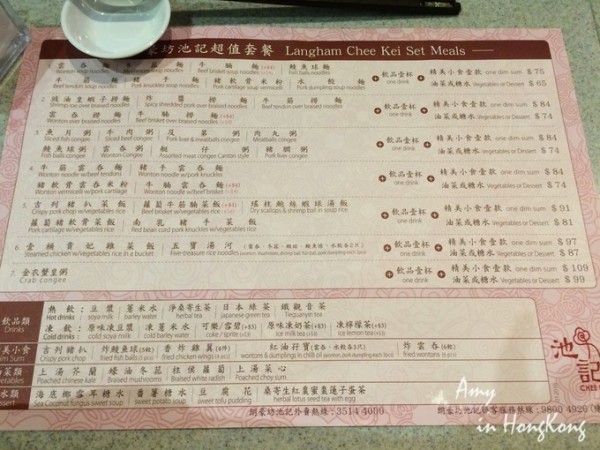 豪坊池記超值套餐 Langham Chee Kei Set Meals
雲吞麵 牛腩麵(+$4) 鯪魚球麵
Wonton soup noodles Beef brisket soup noodles Fish balls noodles
豬軟骨米粉 水餃麵
Pork cartilage soup vermicelli Pork dumpling soup noodles
飲品壹杯 one drink
精美小食壹款 one dim sum $75
油菜或糖水 Vegetables or Dessert $65
2. 蝦子撈麵 炸醬撈麵 牛筋撈麵
Shrimp roe over braised noodles Spicy shredded pork over braised noodles Beef tendon over braised noodles
雲吞撈麵 牛腩撈麵
Wonton over braised noodles Beef brisket over braised noodles
飲品壹杯 one drink
精美小食壹款 one dim sum $84
油菜或糖水 Vegetables or Dessert $74
3. 魚片粥 牛肉粥 及第粥 肉丸粥
Sliced fish congee Sliced beef congee Pork liver & meatballs congee Meatballs congee
鯪魚球粥 雲吞粥 艇仔粥 豬膶粥
Fish balls congee Wonton congee Assorted meat congee Canton style Pork liver congee
飲品壹杯 one drink
精美小食壹款 one dim sum $84
油菜或糖水 Vegetables or Dessert $74
4. 牛筋雲吞麵 豬手雲吞麵
Wonton noodle w/beef tendon Wonton noodle w/pork knuckles
豬軟骨雲吞米粉 牛腩雲吞麵
Wonton vermicelli w/pork cartilage Wonton noodle w/beef brisket
飲品壹杯 one drink
精美小食壹款 one dim sum $84
油菜或糖水 Vegetables or Dessert $74
5. 吉列豬扒菜飯 蘿蔔牛筋腩菜飯 瑤柱鮑絲蝦球湯飯
Crispy pork chop w/vegetables rice Beef brisket w/vegetables rice Dry scallops & shrimp ball in soup rice
蘿蔔豬軟骨菜飯 南乳豬手菜飯
Pork cartilage w/vegetables rice Pork knuckles w/vegetables rice
飲品壹杯 one drink
精美小食壹款 one dim sum $91
油菜或糖水 Vegetables or Dessert $81
6. 壹桶貴妃雞菜飯 五寶湯河
Steamed chicken w/vegetables rice in a bucket Five-treasure rice noodles
飲品壹杯 one drink
精美小食壹款 one dim sum $97
油菜或糖水 Vegetables or Dessert $87
7. 金衣蟹皇粥
Crab congee
飲品壹杯 one drink
精美小食壹款 one dim sum $109
油菜或糖水 Vegetables or Dessert $99
飲品類 Drinks
熱飲: 豆漿 薏米水 淨桑寄生茶 日本綠茶 鐵觀音茶
Hot drinks soya milk barley water herbal tea japanese green tea Tieguanyin tea
凍飲: 原味凍豆漿 凍薏米水 可樂/雪碧(+$3) 原味凍奶茶(+$3) 凍檸檬茶(+$3)
Cold drinks cold soya milk cold barley water coke / sprite ice milk tea ice lemon tea
美小食
吉列豬扒 炸鯪魚球 南杏炸雞翼 紅油孖寶 炸雲吞
Crispy pork chop fried fish balls fried chicken wings wontons & dumplings in chilli oil fried wontons
菜類 etables
上湯芥蘭 蠔油冬菇 柱侯蘿蔔 上湯菜心
Poached chinese kale Braised mushroom Braised white radish Poached choy sum
水類 ssert
海底椰雪耳糖水 番薯糖水 豆腐花 桑寄生紅棗蜜棗蓮子蛋茶
Sea Coconut fungus sweet soup sweet potato soup sweet tofu curd herbal lotus seed tea with egg
朗豪坊池記外賣熱線: 3514 4000
池記
CHEE
Amy
in HongKong